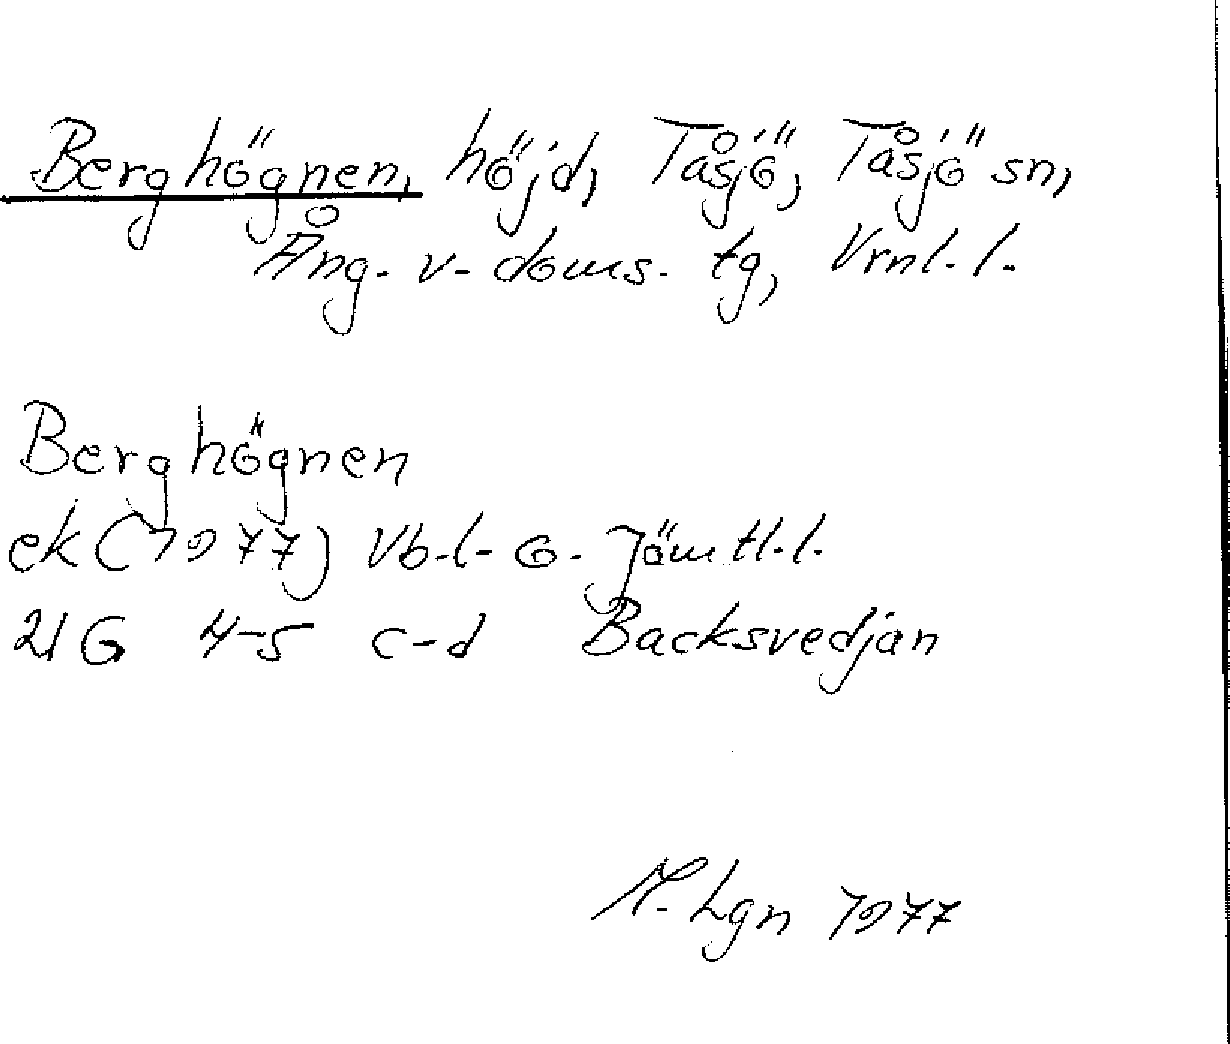 Berghögnen, höjd, Tåsjö, Tåsjö sn,
Ång. v. doms. tg, Vrnl. l.
Berghögnen
ek (1977) Vb. l. o. Jämtl. l.
21 G 4-5 c-d Backsvedjan
Lgn 1977